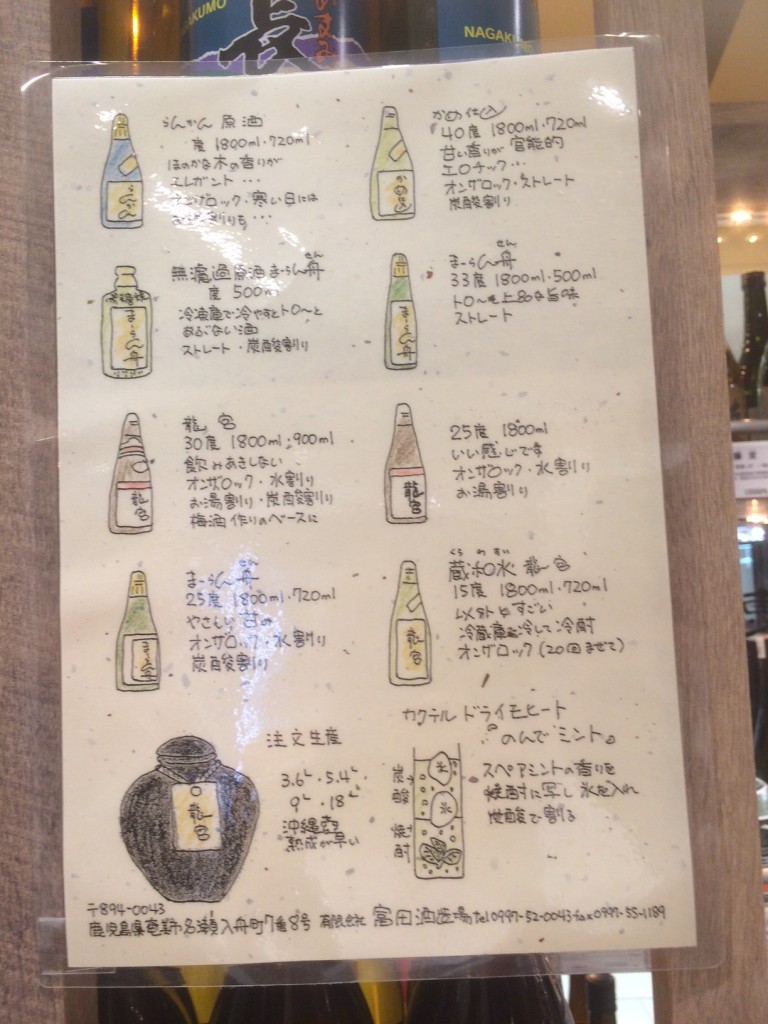 NAGAKUMO
長
NAGAKU
らんかん 原酒
度 1800ml・720ml
ほのかな木の香りが
エレガント・・・
オンザロック・寒い日には
お湯割りも・・・
らんかん
かめ仕込
40度 1800ml・720ml
甘い香りが官能的
エロチック・・・
オンザロック・ストレート
炭酸割り
かめ仕込
無濾過原酒まーらん舟
せん
度 500m
冷凍庫で冷やすとトロ〜と
あぶない酒
ストレート・炭酸割り
まーらん舟
せん
まーらん舟
33度 1800ml・500ml
トロ〜も上品な旨味
ストレート
龍宮
30度 1800ml・900ml
飲みあきしない
オンザロック・水割り
お湯割り・炭酸割り
梅酒作りのベースに
龍宮
25度 1800ml
いい感じです
オンザロック・水割り
お湯割り
龍宮
せん
まーらん舟
25度 1800ml・720ml
やさしい甘め
オンザロック・水割り
炭酸割り
まーらん舟
くら わ すい
蔵和水 龍宮
15度 1800ml・720ml
すごい
冷蔵庫で冷して冷酎
オンザロック(20回まぜて)
龍宮
注文生産
3.6L・5.4L
9L・18L
沖縄壺
熟成が早い
龍宮
カクテル ドライモヒート
『のんで ミント』
スペアミントの香りを
焼酎に写し 氷を入れ
炭酸で割る
炭酸
焼酎
氷
氷
〒894-0043
鹿児島県奄美市名瀬入舟町7番8号 有限会社 富田酒造場 tel 0997-52-0043 fax 0997-55-1189